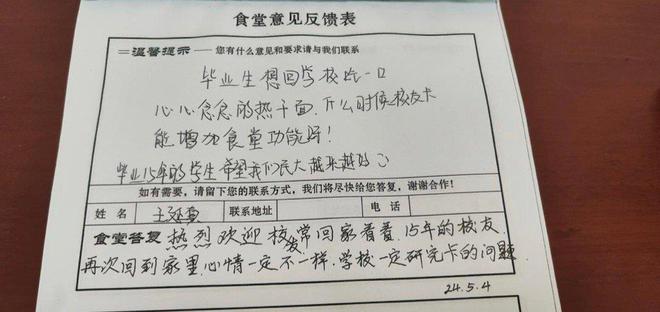 食堂意见反馈表
温馨提示——您有什么意见和要求请与我们联系
毕业生想回学校吃一口
心心念念的热干面.什么时候校友卡
能增加食堂功能呀!
毕业15年的学生希望我们民大越来越好
如有需要,请留下您的联系方式,我们将尽快给您答复,谢谢合作!
姓名 王 联系地址 电话
食堂答复 热烈欢迎校友常回家看看.15年的校友.
再次回到家里.心情一定不一样.学校一定研究卡的问题
24.5.4